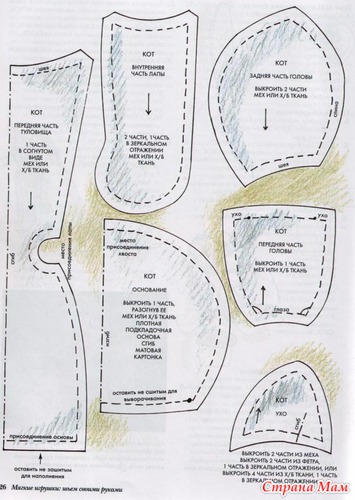 шея
КОТ
ПЕРЕДНЯЯ ЧАСТЬ
ТУЛОВИЩА
1 ЧАСТЬ
В СОГНУТОМ
ВИДЕ
МЕХ ИЛИ
Х/Б ТКАНЬ
сгиб
место
присоединения лапы
присоединение основы
оставить не зашитым
для наполнения
КОТ
ВНУТРЕННЯЯ
ЧАСТЬ ЛАПЫ
2 ЧАСТИ, 1 ЧАСТЬ
В ЗЕРКАЛЬНОМ
ОТРАЖЕНИИ
МЕХ ИЛИ Х/Б ТКАНЬ
КОТ
ЗАДНЯЯ ЧАСТЬ ГОЛОВЫ
ВЫКРОИТЬ 2 ЧАСТИ
МЕХ ИЛИ Х/Б ТКАНЬ
спина
шея
место
присоединения
хвоста
КОТ
ОСНОВАНИЕ
ВЫКРОИТЬ 1 ЧАСТЬ,
РАЗОГНУВ ЕЕ
МЕХ ИЛИ Х/Б ТКАНЬ
ПЛОТНАЯ
ПОДКЛАДОЧНАЯ
ОСНОВА
СГИБ
МАТОВАЯ
КАРТОНКА
изгиб
оставить не сшитым для
выворачивания
ухо
ухо
КОТ
ПЕРЕДНЯЯ ЧАСТЬ
ГОЛОВЫ
ВЫКРОИТЬ 1 ЧАСТЬ
МЕХ ИЛИ Х/Б ТКАНЬ
глаза
КОТ
УХО
ВЫКРОИТЬ 2 ЧАСТИ ИЗ МЕХА
ВЫКРОИТЬ 2 ЧАСТИ ИЗ ФЕТРА,
1 ЧАСТЬ В ЗЕРКАЛЬНОМ ОТРАЖЕНИИ, ИЛИ
ВЫКРОИТЬ 4 ЧАСТИ ИЗ Х/Б ТКАНИ, 1 ЧАСТЬ
В ЗЕРКАЛЬНОМ ОТРАЖЕНИИ
26 Мягкие игрушки: шьем своими руками
Страна Мам